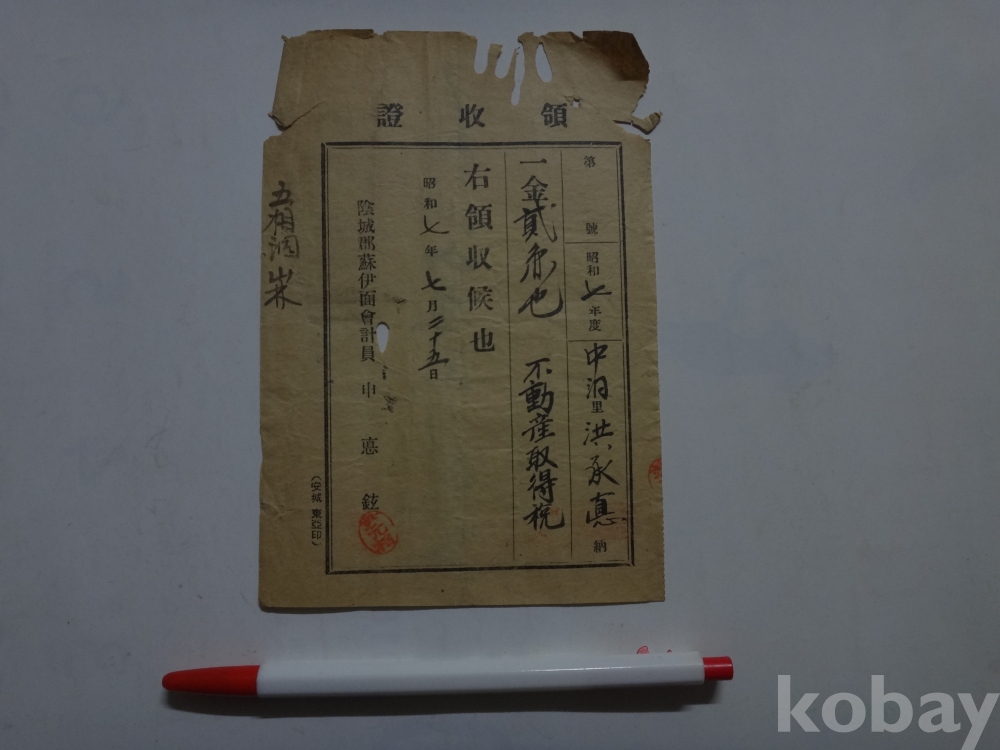 領收證
第 號 昭和七年度 中洞里 洪承惪 納
一金貳 也 不動産取得税
右領收候也
昭和七年七月二十五日
陰城郡蘇伊面會計員 申悳鉉
(安城 東亞印)
五相洞
kobay